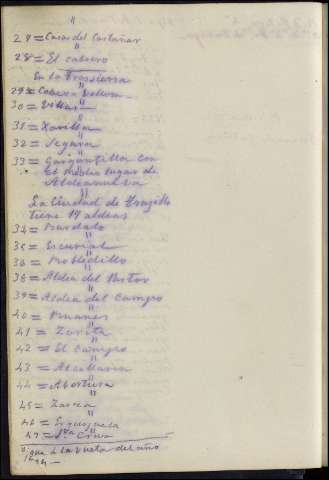 "
27 = Casas del Castañar
"
28 = El cabrero
En la Trassierra
29 = Cabeza Vellosa
30 = Villar
"
31 = Xarilla
"
32 = Segura
"
33 = Gargantilla con
El medio lugar de
Aldeanueba
"
La Ciudad de Truxillo
tiene 17 aldeas
34 = Burdalo
"
35 = Escurial
"
36 = Robledillo
"
38 = Aldea del Pastor
"
39 = Aldea del Campo
"
40 = Ruanes
"
41 = Zorita
"
42 = El Campo
"
43 = Alcollarin
"
44 = Abertura
"
45 = Zarza
"
46 = Erguijuela
47 = Sta Cruz
Sigue á la vuelta del año
1594 —